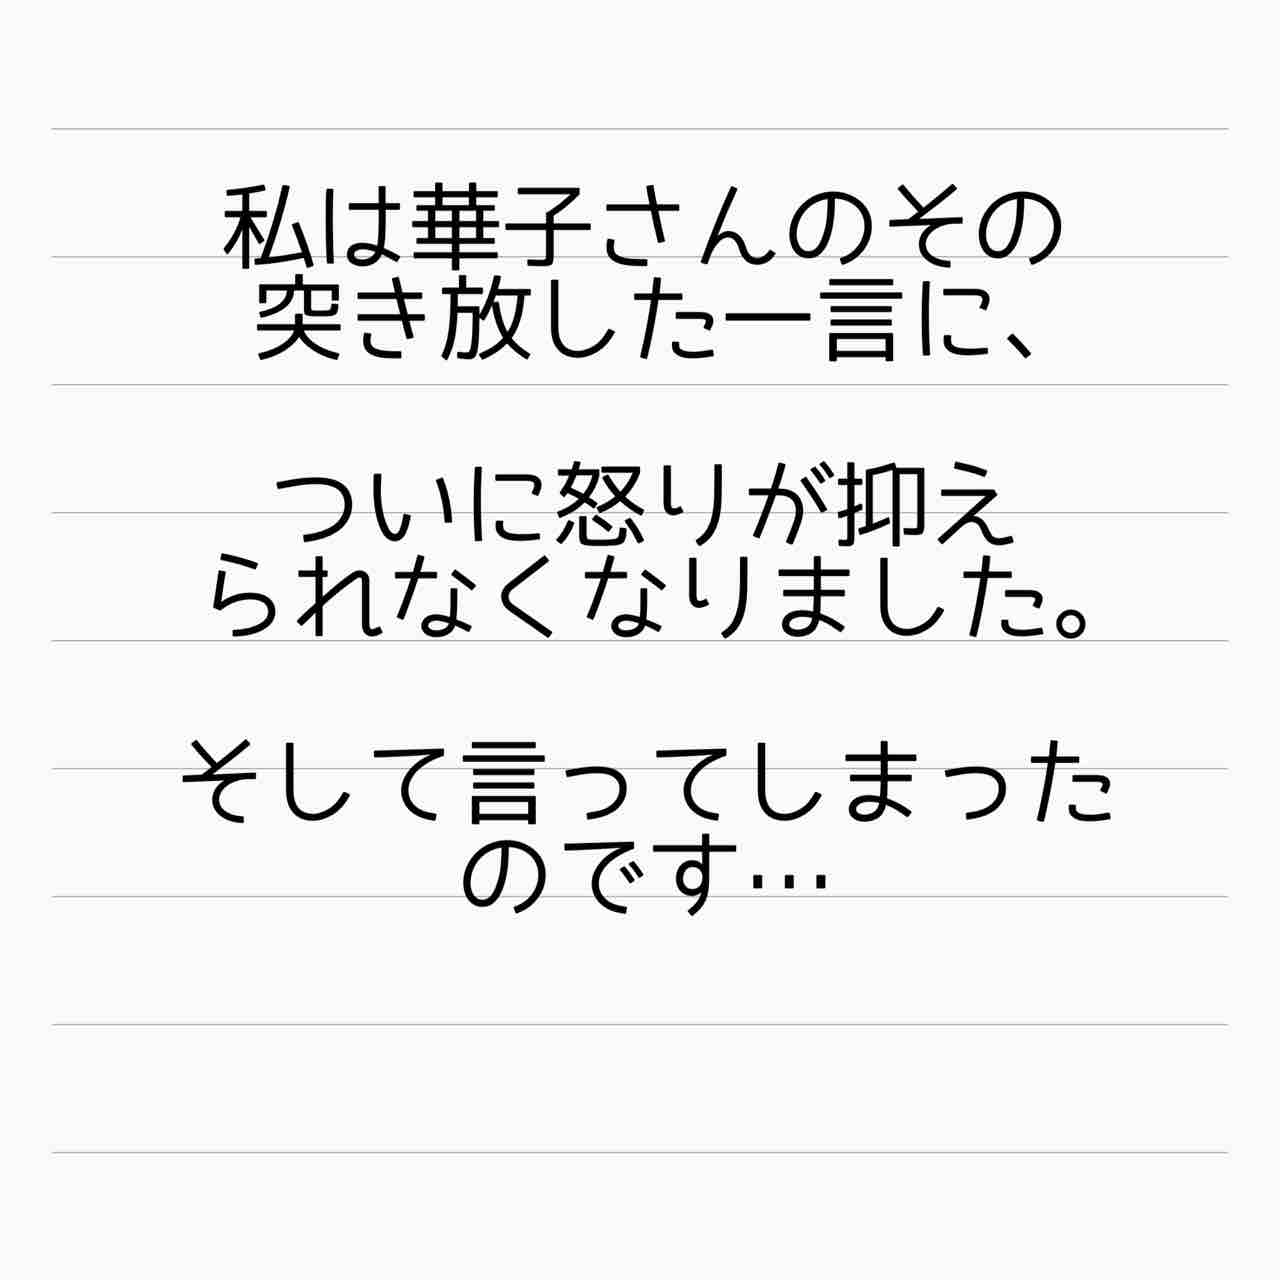 私は華子さんのその
突き放した一言に、
ついに怒りが抑え
られなくなりました。
そして言ってしまった
のです…